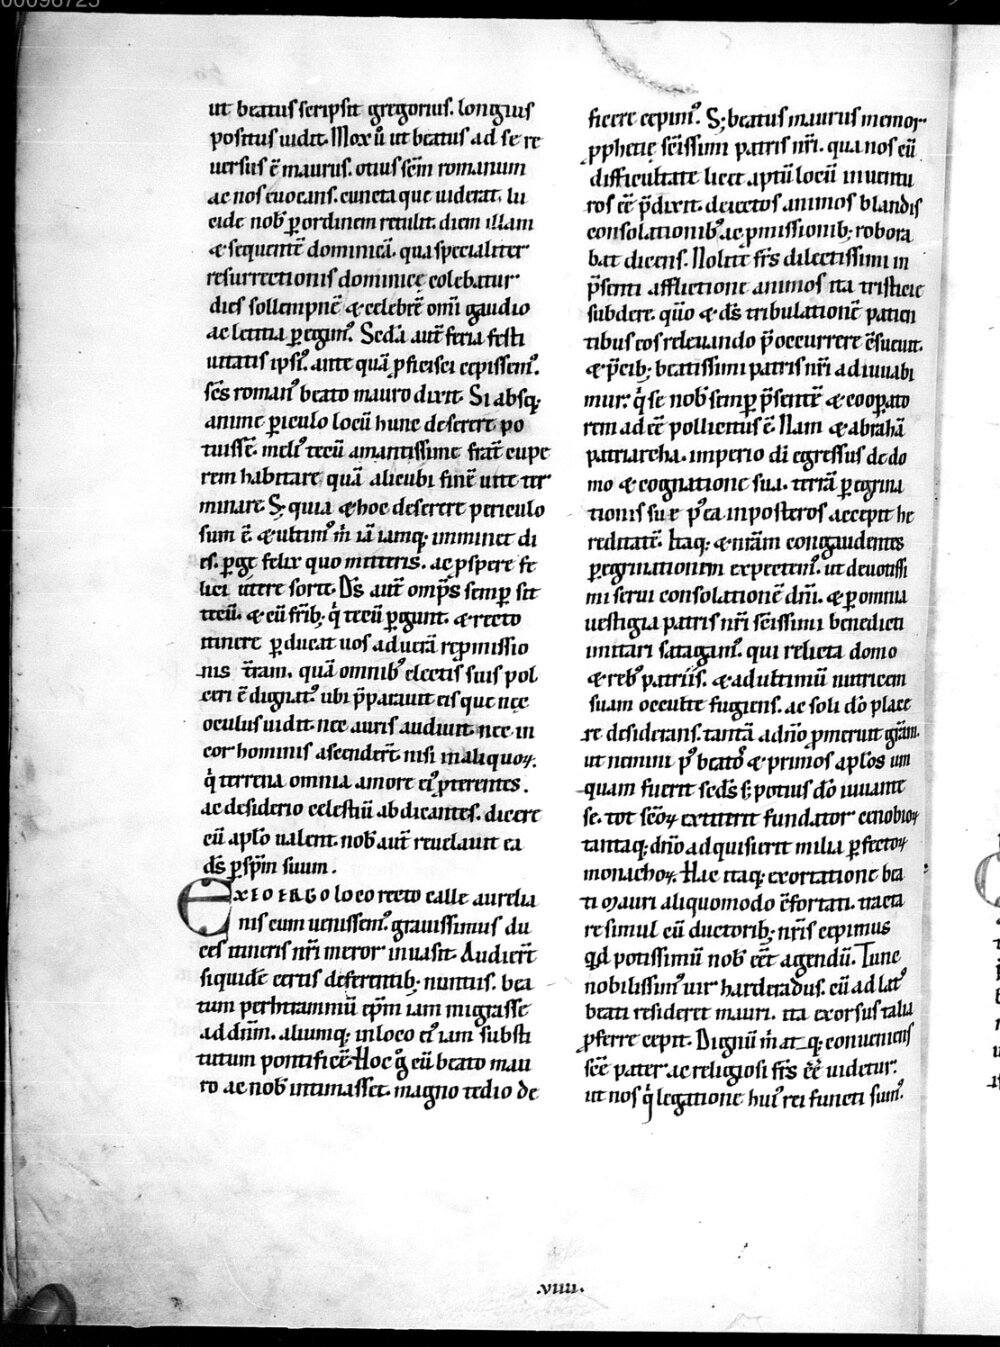 00096725
ut beatus scripsit gregorius. longius
positus uidit. Mox ū ut beatus ad se re
uersus ē maurus. ocius scm̄ romanum
ac nos euocans. cuncta que uiderat. lu
cide nob̄ p ordinem retulit. diem illam
& sequentē dominicā. qua specialiter
resurrectionis dominicę colebatur
dies sollempnē & celebrē om̄i gaudio
ac leticia pegim᷒. Secda aut̄ feria festi
uitatis ipsi᷒. ante quā pficisci cepissem᷒.
scs̄ roman᷒ beato mauro dixit. Si absq;
anime piculo locū hunc deserere po
tuissē. meli᷒ tecū amantissime frat̄ cupe
rem habitare quā alicubi finē uite ter
minare. S; quia & hoc deserere periculo
sum ē. & ultim᷒ m̄ iā iamq; imminet di
es. pge felix quo mitteris. ac pspere fe
lici utere sorte. Ds̄ aut̄ omp̄s semp sit
tecū. & cū frib̄; q̇ tecū pgunt. & recto
itinere pducat uos ad uerā repmissio
nis t̄ram. quā omnib᷒ electis suis pol
ceri ē dignat᷒. ubi pparauit eis que nec
oculus uidit. nec auris audiuit. nec in
cor hominis ascendert̄. nisi in aliquoꝝ.
q̇ terrena omnia amore ei᷒ pterentes.
ac desiderio celestiū abdicantes. dicere
cū aplo ualent. nob̄ aut̄ reuelauit ea
ds̄ p sp̄m suum.
Ex io ergo loco recto calle aurelia
nis cum uenissem᷒. grauissimus du
ces itineris nr̄i meror inuasit. Audiert̄
siquidē certis deferentib; nuntiis. bea
tum perhtrammū ep̄m iam migrasse
ad dn̄m. aliumq; in loco ei᷒ iam substi
tutum pontificē. Hoc g̊ cū beato mau
ro ac nob̄ intimasset. magno tedio de
ficere cepim᷒. S; beatus maurus memor
pphetię sc̄issimi patris nr̄i. qua nos cū
difficultate licet aptū locū inuentu
ros eē p̄dixit. deiectos animos blandis
consolationib᷒ ac pmissionib; robora
bat dicens. Nolite frs̄ dilectissimi in
p̄senti afflictione animos ita tristicie
subdere. qūo & ds̄ tribulationē pacien
tibus eos releuando p̄occurrere c̄sueuit.
& p̄cib; beatissimi patris nr̄i adiuuabi
mur. q̇ se nob̄ semp p̄sentē & coopato
rem adeē pollicitus ē. Nam & abrahā
patriarcha. imperio dī egressus de do
mo & cognatione sua. terrā pegrina
tionis suę p᷒ ea in posteros accepit he
reditatē. Itaq; & nīam congaudentes
pegrinationem expectem᷒. ut deuotissi
mi serui consolationē dn̄i. & p omnia
uestigia patris nr̄i sc̄issimi benedicti
imitari satagam᷒. qui relicta domo
& reb᷒ patriis. & ad ultimū nutricem
suam occulte fugiens. ac soli dō place
re desiderans. tantā ad nō pmeruit grām.
ut nemini p᷒ beatos & primos aplos um
quam fuerit sed̄s s; potius dō iuuante
se. tot sc̄oꝝ extiterit fundator cenobioꝝ
tantaq; dn̄o adquisierit milia pfectoꝝ
monachoꝝ. Hac itaq; exortatione bea
ti Mauri aliquomodo c̄fortati. tracta
re simul cū ductorib; nr̄is cepimus
qd̄ potissimū nob̄ eēt agendū. Tunc
nobilissim᷒ uir harderadus. cū ad lat᷒
beati resideret mauri. ita exorsus talia
pferre cepit. Dignū m̄ atq; conueniens
scē pater ac religiosi frs̄ eē uidetur.
ut nos q̇ legatione hui᷒ rei functi sum᷒.
.viiii.